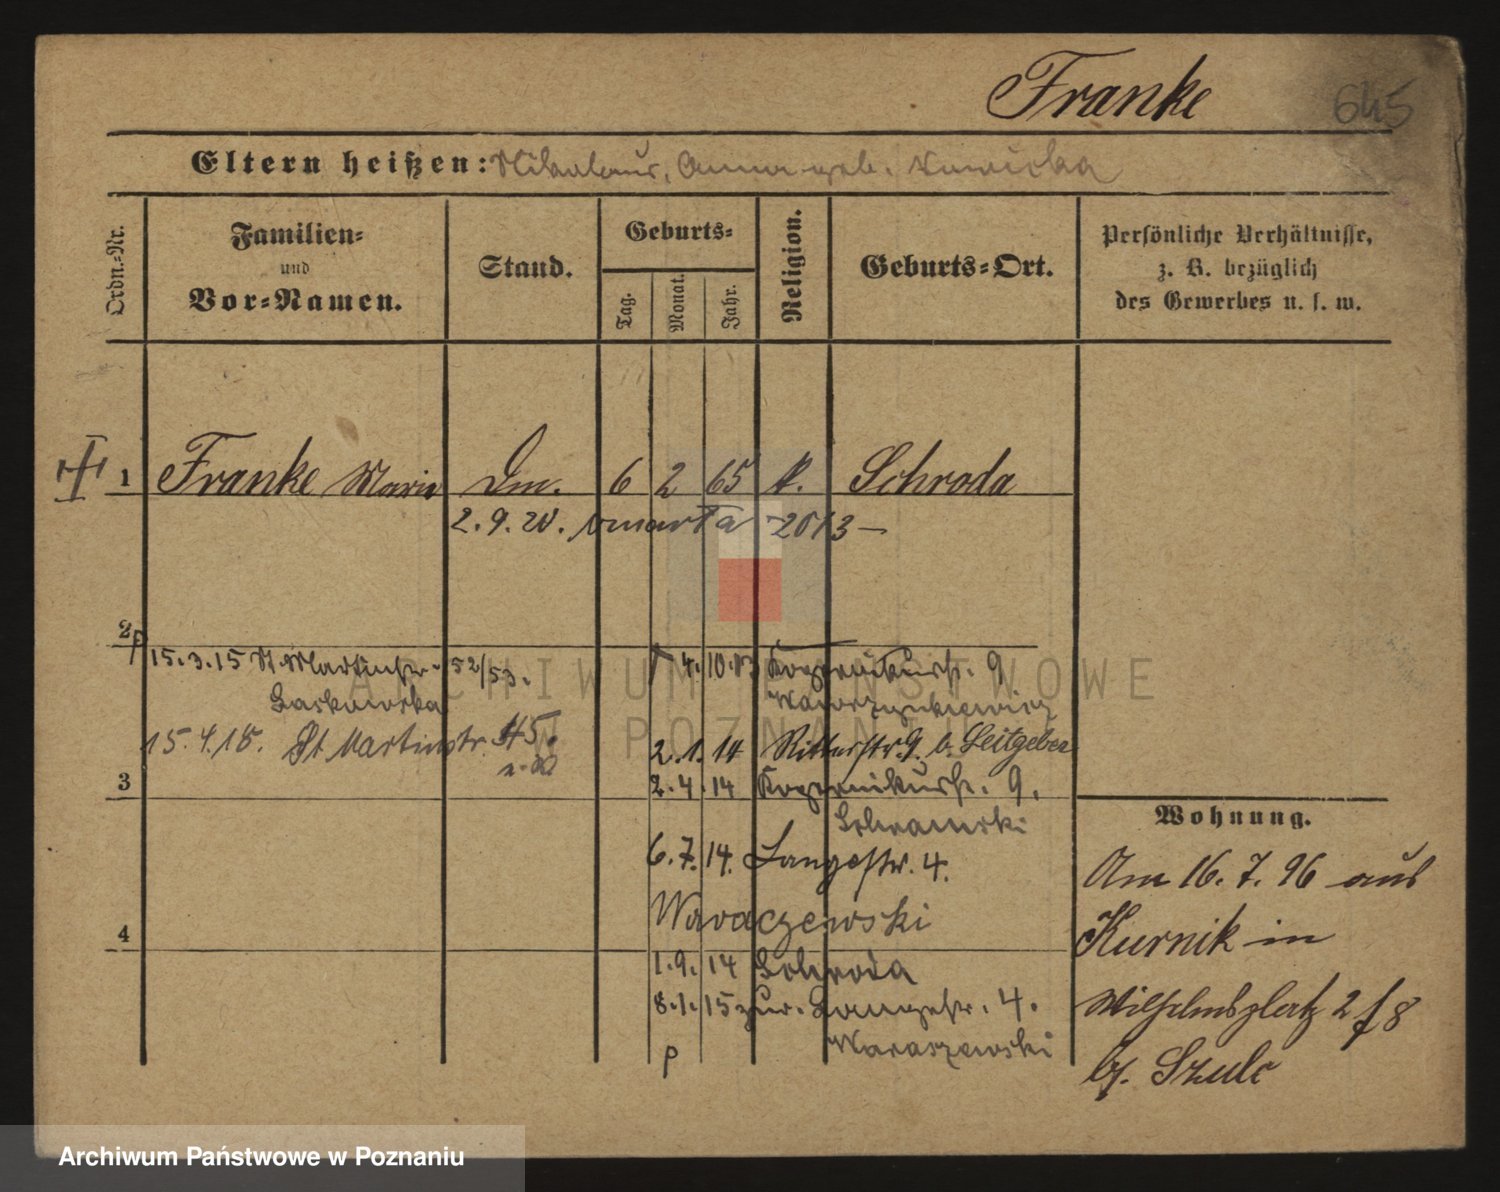 Franke 645
Eltern heißen: Nikolaus, Anna geb. Nowicka
Ordn.-Nr.
Familien-
und
Vor-Namen.
Stand.
Geburts-
Tag.
Monat.
Jahr.
Religion.
Geburts-Ort.
Persönliche Verhältnisse,
z. B. bezüglich
des Gewerbes u. s. w.
1 Franke Maria Dm. 6 2 65 k. Schroda
2.9.20. umarła 2013
2
15.3.15 St Martinstr. 52/53.
Laskowska
15.4.18. St Martinstr. 45.
4.10.13 Kopernikusstr. 9
Wawrzynkiewicz
2.1.14 Ritterstr. 9. b. Leitgeber
2.4.14 Kopernikusstr. 9.
3
Schramski
6.7.14. Langestr. 4.
Waraczewski
4
1.9.14 Schroda
8.1.15 zur. Langestr. 4.
Waraszewski
p
Wohnung.
Am 16.7.96 aus
Kurnik in
Wilhelmsplatz 2 f 8
bj. Szulc
ARCHIWUM PAŃSTWOWE
W POZNANIU
Archiwum Państwowe w Poznaniu